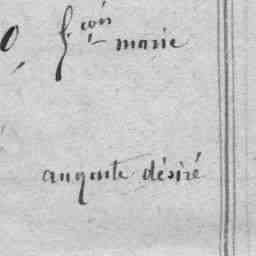 f.çois marie
auguste désiré